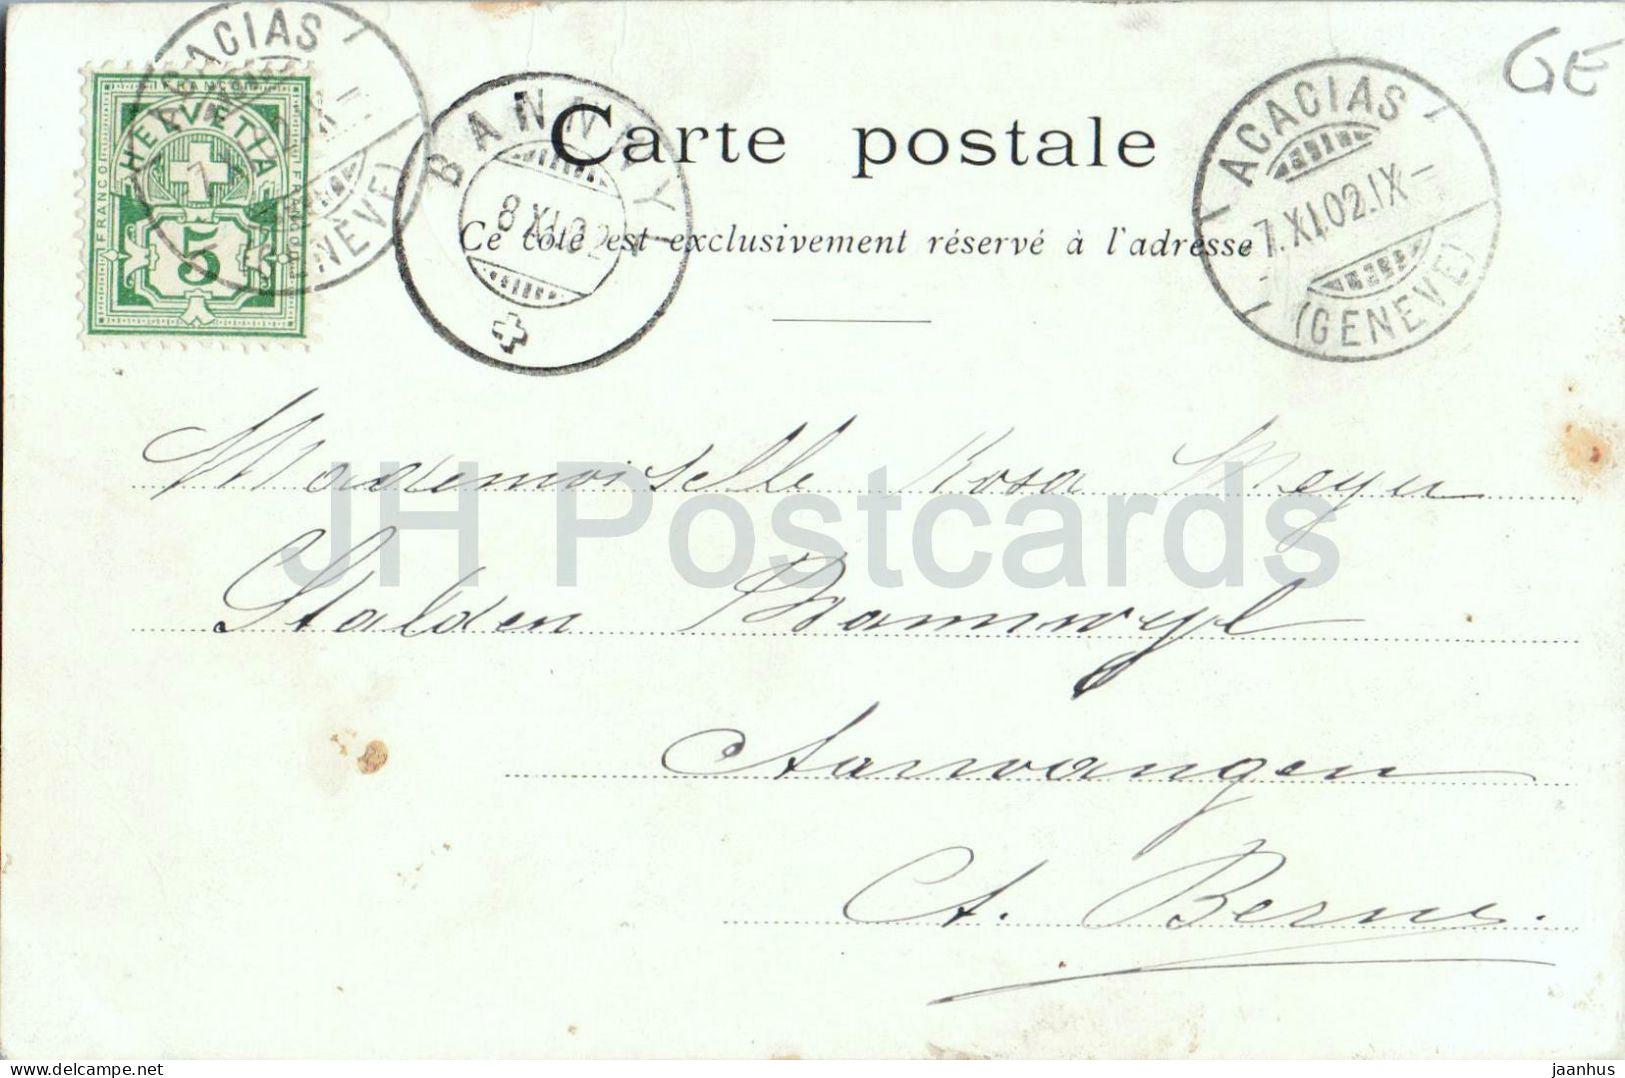 GE
ACACIAS
(GENÈVE)
FRANCO
HELVETIA
FRANCO
FRANCO
5
BANNWY
8 XI.02
Carte postale
ACACIAS
7.XI.02.IX-
(GENÈVE)
Ce côté est exclusivement réservé à l'adresse
Mademoiselle Rosa Meyer
JH Postcards
Stalden Bannwyl
Aarwangen
Ct. Berne.
www.delcampe.net
jaanhus